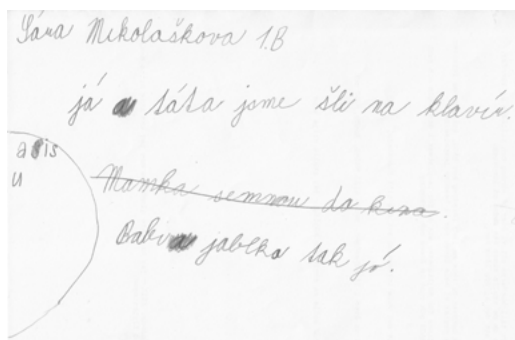 Sára Mikolaškova 1.B
já a táta jsme šli na klavír.
a is
u
Mamka semnou do kina.
jablka tak já.